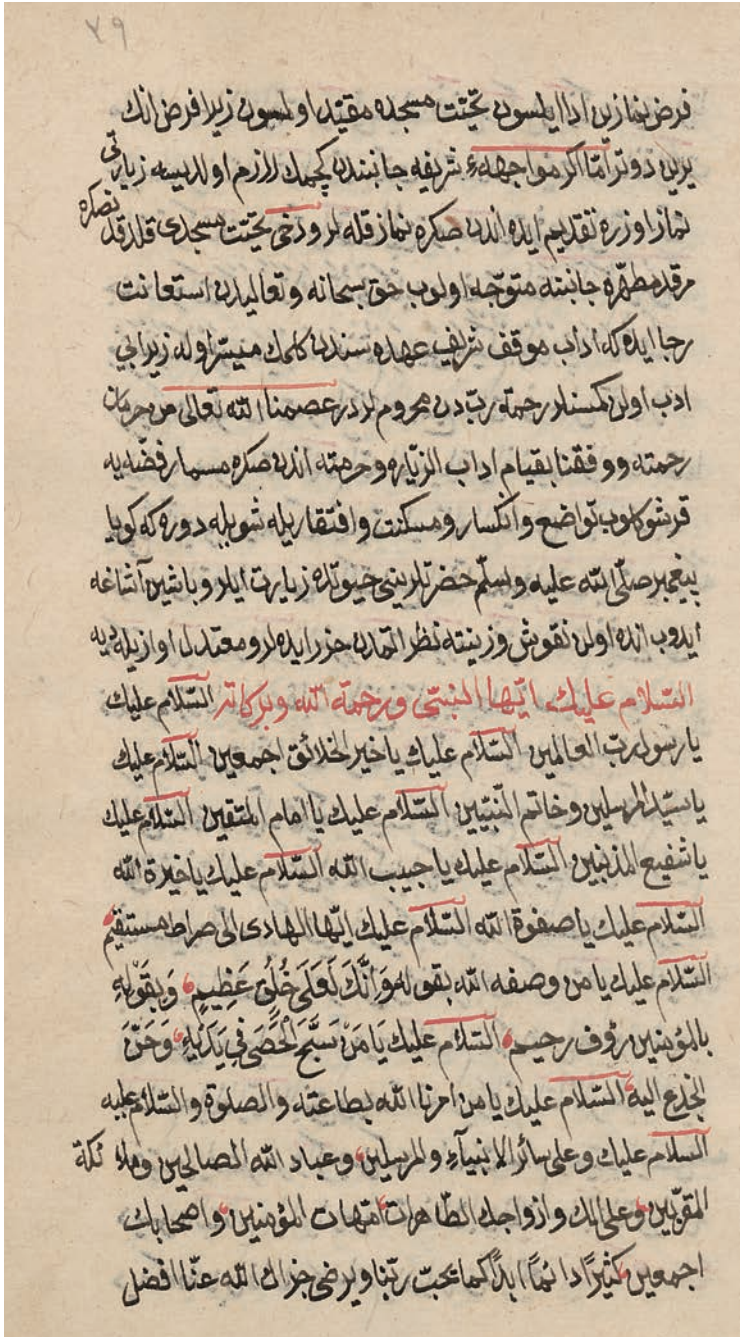 ٧٩
فرض نمازین ادا ایلسون تحیّت مسجده مقیّد اولمسون زیرا فرض انك
یرین دوتر امّا اکر مواجههٔ شریفه جانبندن کچمك لازم اولدیسه زیارتی
نماز اوزره تقدیم ایده اندن صکره نماز قله لر ودخی تحیّت مسجدی قلدقدنصکره
مرقد مطهّره جانبته متوجّه اولوب حق سبحانه وتعالیدن استعانت
رجا ایده که اداب موقف شریف عهده سندن کلمك میسّر اوله زیرا بی
ادب اولن کمسنلر رحمة ربّ دن محروم لردر عصمنا الله تعالی من حرمان
رحمته ووفقنا بقیام اداب الزیاره وحرمته اندن صکره مسمار فضّه یه
قرشو کلوب تواضع وانکسار ومسکنت وافتقار یله شویله دوره که کویا
پیغمبر صلّی الله علیه وسلّم حضرتلرینی حیوتده زیارت ایلر وباشین آشاغه
ایدوب انده اولن نقوش وزینته نظر اتمدن حزر ایده لر ومعتدل اوازیله دیه
السّلام علیك ایّها النبیّ ورحمة الله وبرکاته السّلام علیك
یا رسول ربّ العالمین السّلام علیك یا خیر الخلائق اجمعین السّلام علیك
یا سیّد المرسلین وخاتم النّبیّین السّلام علیك یا امام المتقین السّلام علیك
یا شفیع المذنبین السّلام علیك یا حبیب الله السّلام علیك یا خیرة الله
السّلام علیك یا صفوة الله السّلام علیك ایّها الهادی الی صراط مستقیم
السّلام علیك یا من وصفه الله بقوله وَاِنَّكَ لَعَلَى خُلُقٍ عَظِيمٍ وَبِقَوْلِهِ
بالمؤمنین رؤف رحیم السّلام علیك یَا مَنْ سَبَّحَ الْحَصَى فِي يَدَيْهِ وَحَنَّ
الجذع الیه السّلام علیك یا من امرنا الله بطاعته والصلوة والسّلام علیه
السلام علیك وعلی سائر الانبیآء والمرسلین وعباد الله الصالحین وملائکة
المقرّبین وعلی الك وازواجك الطّاهرات امّهات المؤمنین واصحابك
اجمعین کثیرًا دائمًا ابدًا کما یحبّ ربّنا ویرضی جزاك الله عنّا افضل